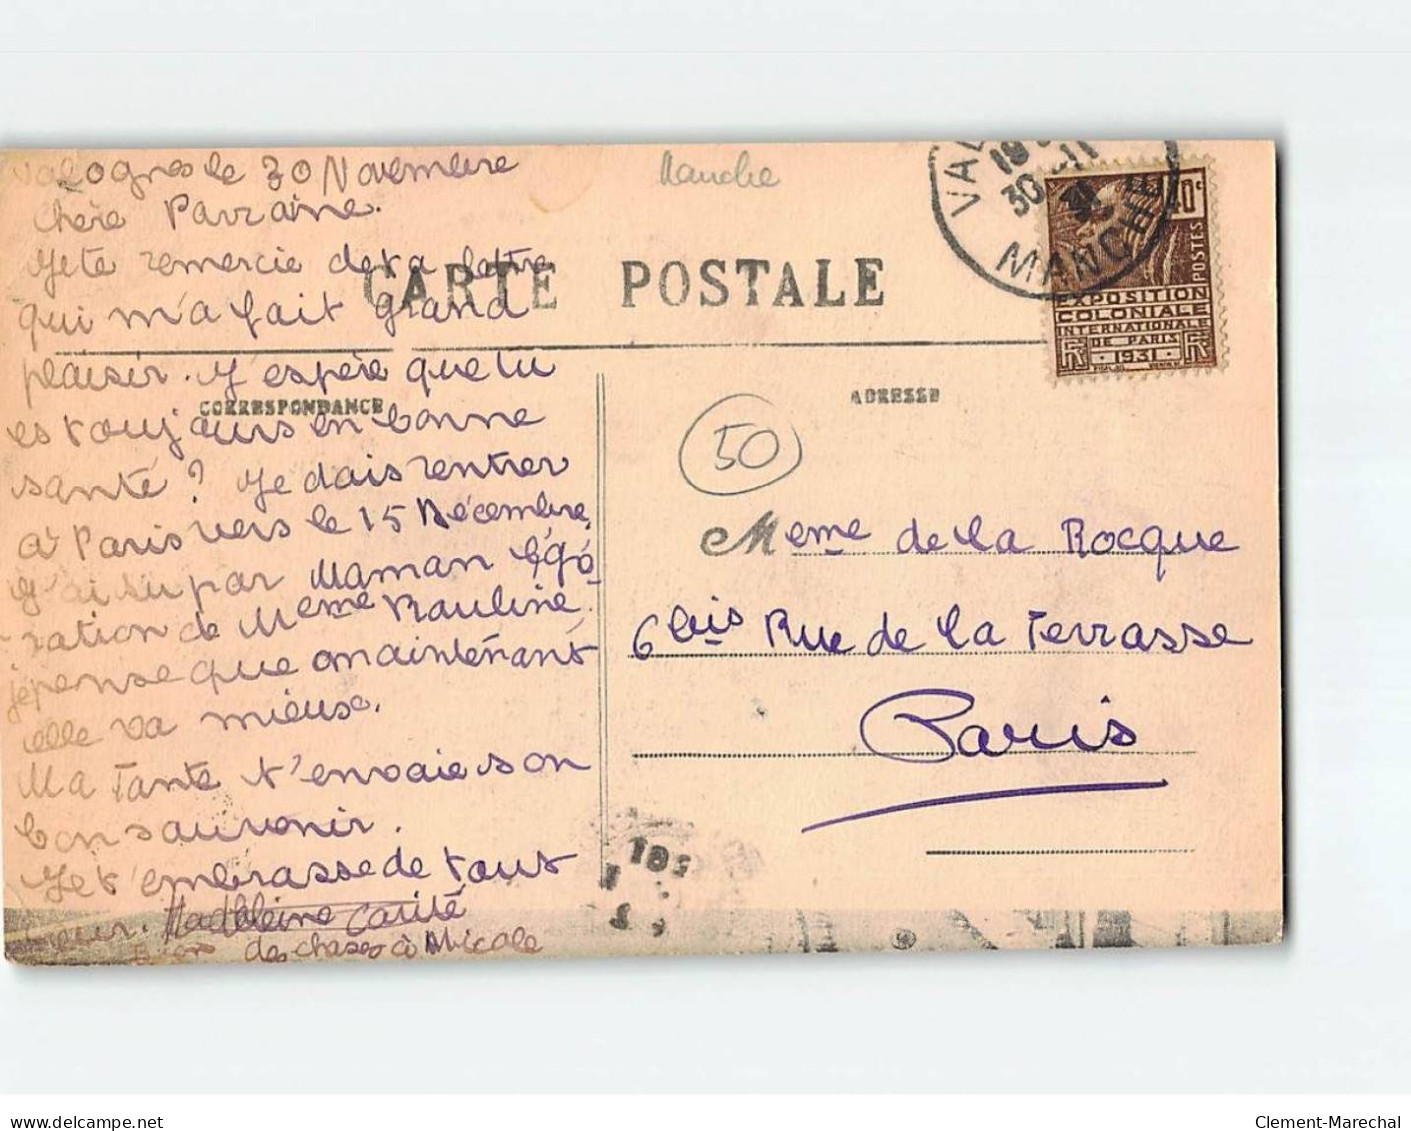 Valognes le 30 Novembre
Chère Parraine.
Je te remercie de ta lettre
qui m'a fait grand
plaisir. J'espère que tu
es toujours en bonne
santé ? Je dais rentrer
à Paris vers le 15 Décembre,
J'ai su par Maman l'opé
ration de Meme Pauline.
je pense que maintenant
elle va mieux.
Ma Tante t'envoie son
bon souvenir.
Je t'embrasse de tout
coeur. Madeleine Carité
des choses à Nicole
Manche
CARTE POSTALE
CORRESPONDANCE
ADRESSE
50
Meme de la Rocque
6 bis Rue de la Terrasse
Paris
VAL
30-11
31
MANCHE
40c
POSTES
EXPOSITION
COLONIALE
INTERNATIONALE
DE PARIS
RF 1931 RF
Clement-Marechal
www.delcampe.net